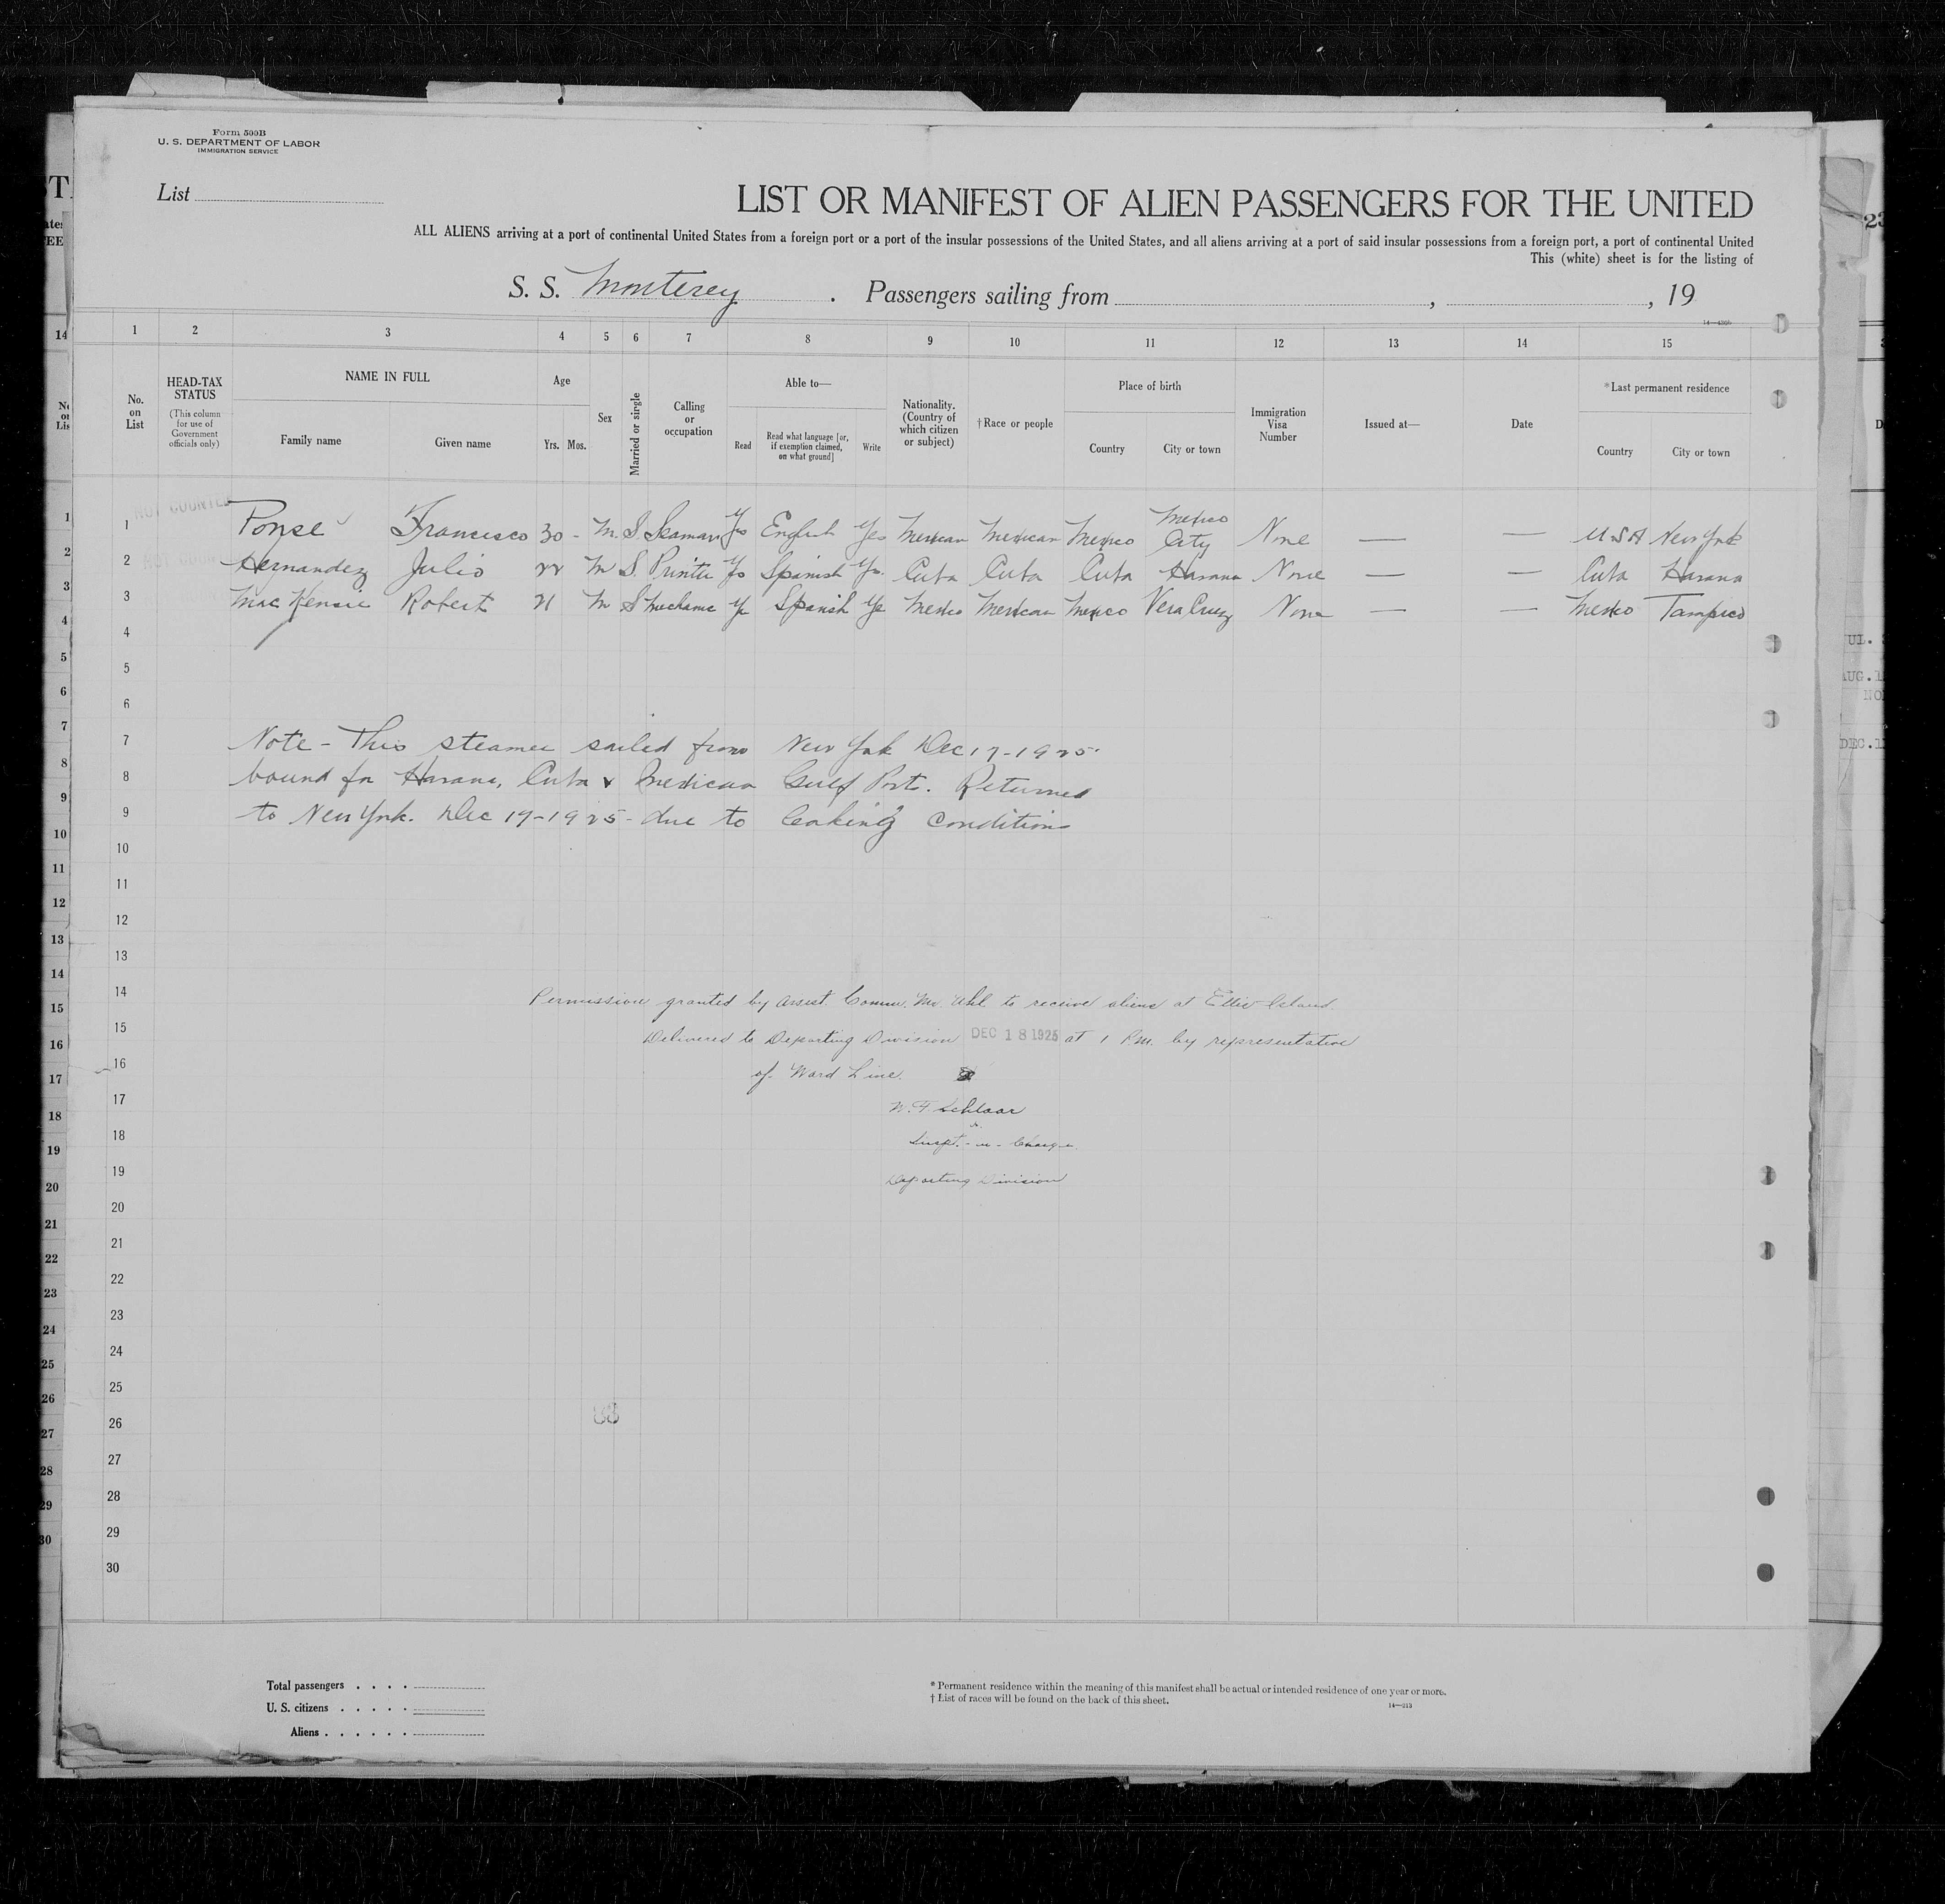 Form 500B
U. S. DEPARTMENT OF LABOR
IMMIGRATION SERVICE
List
LIST OR MANIFEST OF ALIEN PASSENGERS FOR THE UNITED
ALL ALIENS arriving at a port of continental United States from a foreign port or a port of the insular possessions of the United States, and all aliens arriving at a port of said insular possessions from a foreign port, a port of continental United
This (white) sheet is for the listing of
S. S. Monterey . Passengers sailing from , , 19
1 2 3 4 5 6 7 8 9 10 11 12 13 14 15
No. on List
HEAD-TAX STATUS (This column for use of Government officials only)
NAME IN FULL
Family name Given name
Age
Yrs. Mos.
Sex
Married or single
Calling or occupation
Able to—
Read Read what language [or, if exemption claimed, on what ground] Write
Nationality. (Country of which citizen or subject)
†Race or people
Place of birth
Country City or town
Immigration Visa Number
Issued at—
Date
*Last permanent residence
Country City or town
NOT COUNTED
1 Ponse Francisco 30 - M. S. Seaman Yes English Yes Mexican Mexican Mexico Mexico City None — — USA New York
2 Hernandez Julio 22 M S. Printer Yes Spanish Yes. Cuba Cuba Cuba Havana None — — Cuba Havana
3 MacKensie Robert 21 M S Mechanic Ye Spanish Ye Mexico Mexican Mexico Vera Cruz None — — Mexico Tampico
4
5
6
7 Note - This steamer sailed from New York Dec 17-1925-
8 bound for Havana, Cuba & Mexican Gulf Port. Returned
9 to New York. Dec 17-1925- due to leaking conditions
10
11
12
13
14 Permission granted by Assist. Comm. Mr. Uhl to receive aliens at Ellis Island.
15 Delivered to Deporting Division DEC 18 1925 at 1 P.M. by representative
16 of Ward Line.
17 W. F. Schlaar
18 Inspt.-in-Charge
19 Deporting Division
20
21
22
23
24
25
26
27
28
29
30
Total passengers . . . .
U. S. citizens . . . . .
Aliens . . . . . .
* Permanent residence within the meaning of this manifest shall be actual or intended residence of one year or more.
† List of races will be found on the back of this sheet.
14—213